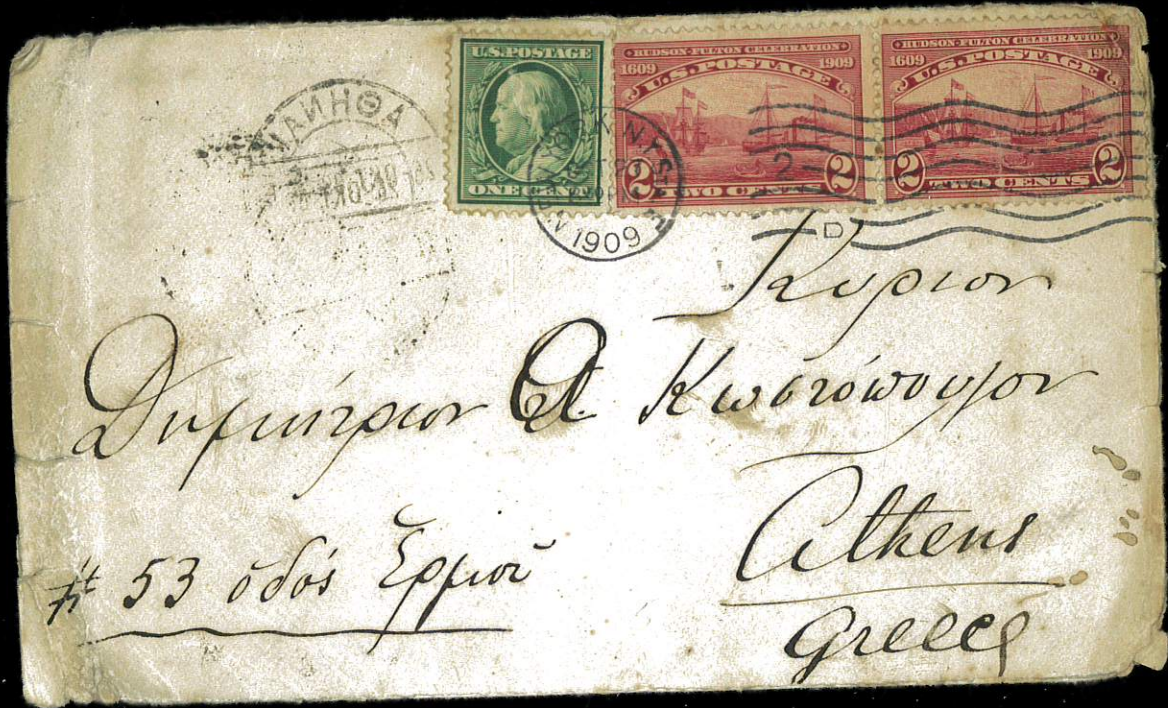 U.S. POSTAGE
ONE CENT
HUDSON-FULTON CELEBRATION
1609 1909
U.S. POSTAGE
2 TWO CENTS 2
HUDSON-FULTON CELEBRATION
1609 1909
U.S. POSTAGE
2 TWO CENTS 2
ΑΘΗΝΑΙ
1909
2
D
Κύριον
Δημήτριον Α Κωστόπουλον
# 53 ὁδός Ἑρμοῦ
Athens
Greece